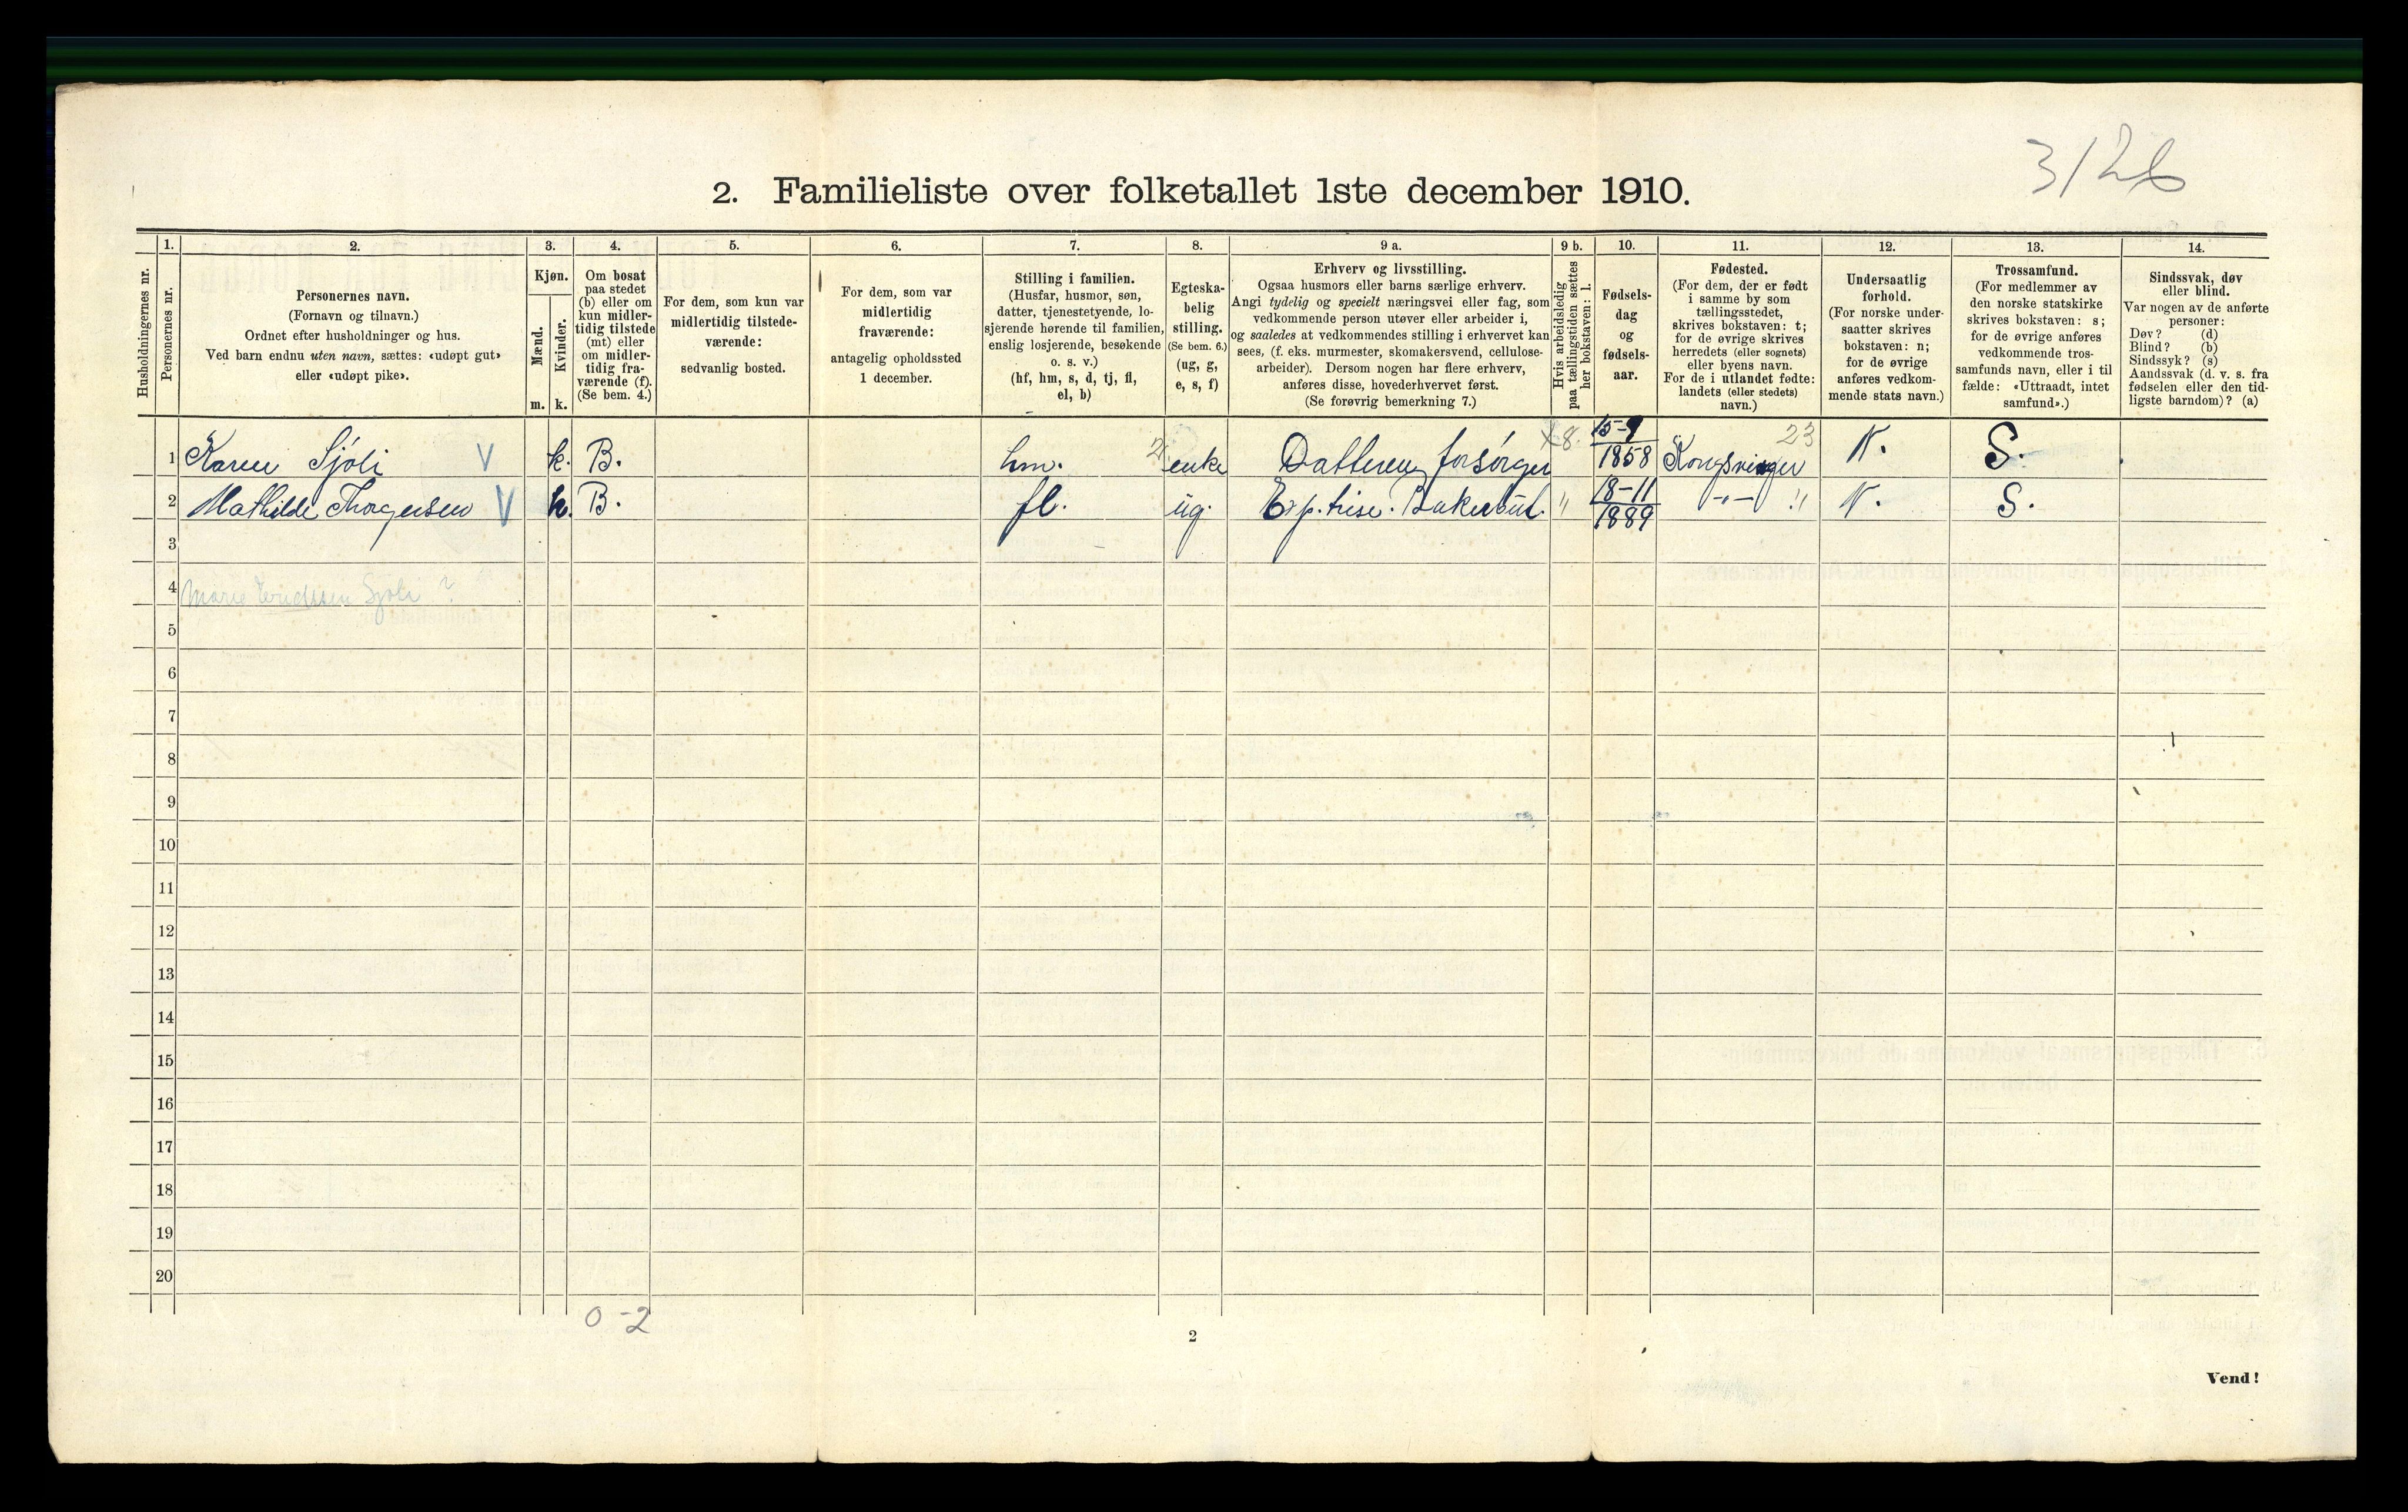 3/26
2. Familieliste over folketallet 1ste december 1910.
Husholdningernes nr.
1.
Personernes nr.
2.
Personernes navn.
(Fornavn og tilnavn.)
Ordnet efter husholdninger og hus.
Ved barn endnu uten navn, sættes: «udøpt gut»
eller «udøpt pike».
3.
Kjøn.
Mænd.
Kvinder.
m. k.
4.
Om bosat
paa stedet
(b) eller om
kun midler-
tidig tilstede
(mt) eller
om midler-
tidig fra-
værende (f).
(Se bem. 4.)
5.
For dem, som kun var
midlertidig tilstede-
værende:
sedvanlig bosted.
6.
For dem, som var
midlertidig
fraværende:
antagelig opholdssted
1 december.
7.
Stilling i familien.
(Husfar, husmor, søn,
datter, tjenestetyende, lo-
sjerende hørende til familien,
enslig losjerende, besøkende
o. s. v.)
(hf, hm, s, d, tj, fl,
el, b)
8.
Egteska-
belig
stilling.
(Se bem. 6.)
(ug, g,
e, s, f)
9 a.
Erhverv og livsstilling.
Ogsaa husmors eller barns særlige erhverv.
Angi tydelig og specielt næringsvei eller fag, som
vedkommende person utøver eller arbeider i,
og saaledes at vedkommendes stilling i erhvervet kan
sees, (f. eks. murmester, skomakersvend, cellulose-
arbeider). Dersom nogen har flere erhverv,
anføres disse, hovederhvervet først.
(Se forøvrig bemerkning 7.)
9 b.
Hvis arbeidsledig
paa tællingstiden sættes
her bokstaven: l.
10.
Fødsels-
dag
og
fødsels-
aar.
11.
Fødested.
(For dem, der er født
i samme by som
tællingsstedet,
skrives bokstaven: t;
for de øvrige skrives
herredets (eller sognets)
eller byens navn.
For de i utlandet fødte:
landets (eller stedets)
navn.)
12.
Undersaatlig
forhold.
(For norske under-
saatter skrives
bokstaven: n;
for de øvrige
anføres vedkom-
mende stats navn.)
13.
Trossamfund.
(For medlemmer av
den norske statskirke
skrives bokstaven: s;
for de øvrige anføres
vedkommende tros-
samfunds navn, eller i til
fælde: «Uttraadt, intet
samfund».)
14.
Sindssvak, døv
eller blind.
Var nogen av de anførte
personer:
Døv? (d)
Blind? (b)
Sindssyk? (s)
Aandssvak (d. v. s. fra
fødselen eller den tid-
ligste barndom)? (a)
1 Karen Sjöli V k. B. hm. enke Datteren forsörger 8. 15-9 1858 Kongsvinger 23 N. S.
2 Mathilde Thorgersen V k. B. fl. ug. Exp. trise. Bakerut. " 18-11 1889 -"- " N. S.
3
4 Marie Sjöli ?
5
6
7
8
9
10
11
12
13
14
15
16
17
18
19
20
0-2
2
Vend!